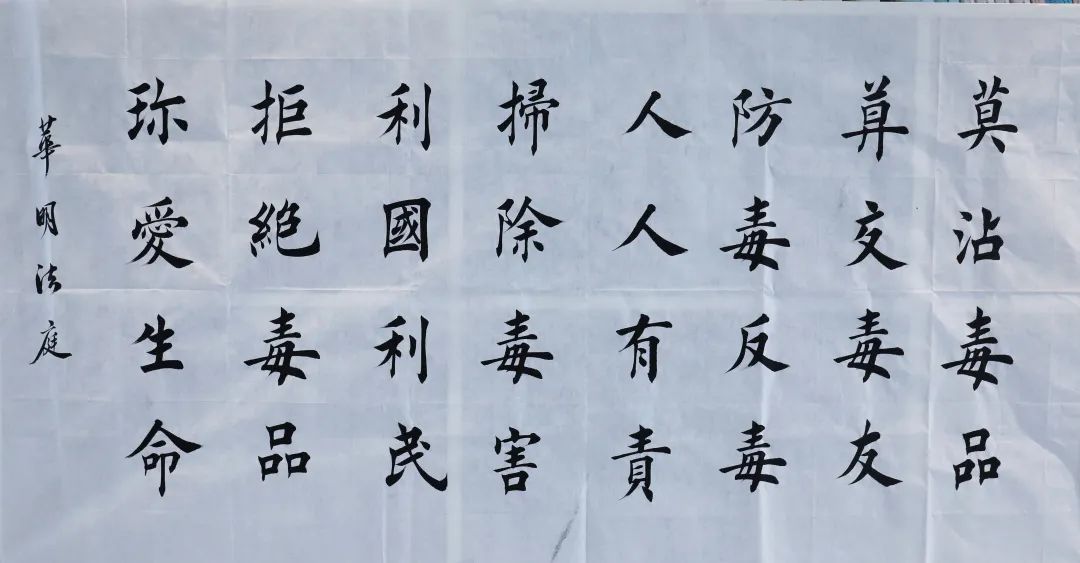 莫沾毒品
莫交毒友
防毒反毒
人人有責
掃除毒害
利國利民
拒絕毒品
珎愛生命
華明法庭